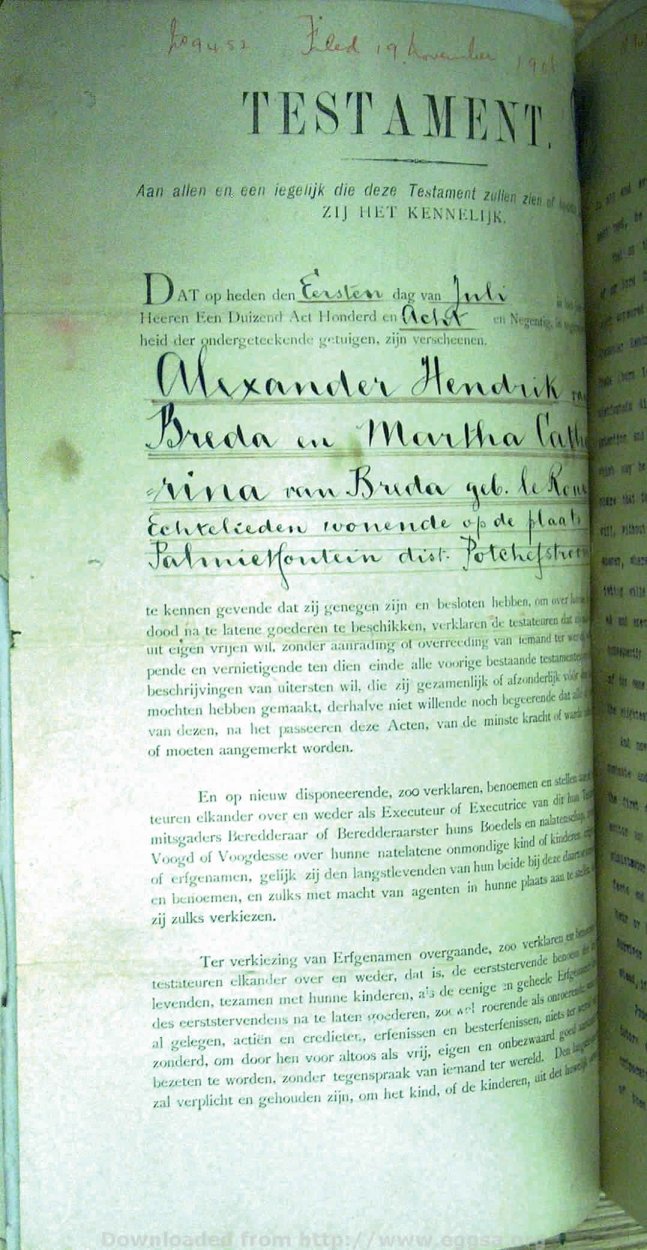 Filed 19 November 190
TESTAMENT.
Aan allen en een iegelijk die deze Testament zullen zien of
ZIJ HET KENNELIJK.
DAT op heden den Eersten dag van Juli in het
Heeren Een Duizend Act Honderd en Acht en Negentig, in
heid der ondergeteekende getuigen, zijn verscheenen.
Alexander Hendrik van
Breda en Martha Cathe
rina van Breda geb. le Roux
Echtelieden wonende op de plaats
Palmietfontein dist. Potchefstroom
te kennen gevende dat zij genegen zijn en besloten hebben, om over hunne
dood na te latene goederen te beschikken, verklaren de testateuren dat
uit eigen vrijen wil, zonder aanrading of overreeding van iemand ter
pende en vernietigende ten dien einde alle voorige bestaande testamenten
beschrijvingen van uitersten wil, die zij gezamenlijk of afzonderlijk vóór
mochten hebben gemaakt, derhalve niet willende noch begeerende dat
van dezen, na het passeeren deze Acten, van de minste kracht of waarde
of moeten aangemerkt worden.
En op nieuw disponeerende, zoo verklaren, benoemen en stellen
teuren elkander over en weder als Executeur of Executrice van dit hun
mitsgaders Beredderaar of Beredderaarster huns Boedels en nalatenschap,
Voogd of Voogdesse over hunne natelatene onmondige kind of kinderen,
of erfgenamen, gelijk zij den langstlevenden van hun beide bij deze
en benoemen, en zulks met macht van agenten in hunne plaats aan te stellen
zij zulks verkiezen.
Ter verkiezing van Erfgenamen overgaande, zoo verklaren en
testateuren elkander over en weder, dat is, de eerststervende benoemt
levenden, tezamen met hunne kinderen, als de eenige en geheele
des eerststervendens na te laten goederen, zoo wel roerende als onroerende,
al gelegen, actiën en credieten, erfenissen en besterfenissen, niets ter wereld
zonderd, om door hen voor altoos als vrij, eigen en onbezwaard goed
bezeten te worden, zonder tegenspraak van iemand ter wereld. Den
zal verplicht en gehouden zijn, om het kind, of de kinderen, uit det huwelijk
Downloaded from http://www.eggsa.org